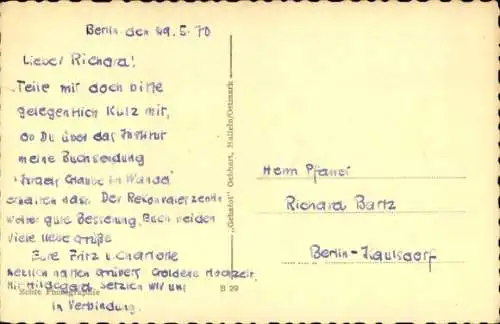 Berlin den 29.5.70
Lieber Richard!
Teile mir doch bitte
gelegentlich kurz mit,
ob Du über das Institut
meine Buchsendung
"Israels Glaube im Wandel"
erhalten hast. Der Rekonvaleszentin
weiter gute Besserung, Euch beiden
viele liebe Grüße
Eure Fritz u. Charlotte
Goldene Hochzeit.
Mit Hildegard setzen wir uns
in Verbindung.
Echte Photographie
B 29
"Gebafot" Gebhart, Hallein/Ostmark
Herrn Pfarrer
Richard Bartz
Berlin-Kaulsdorf